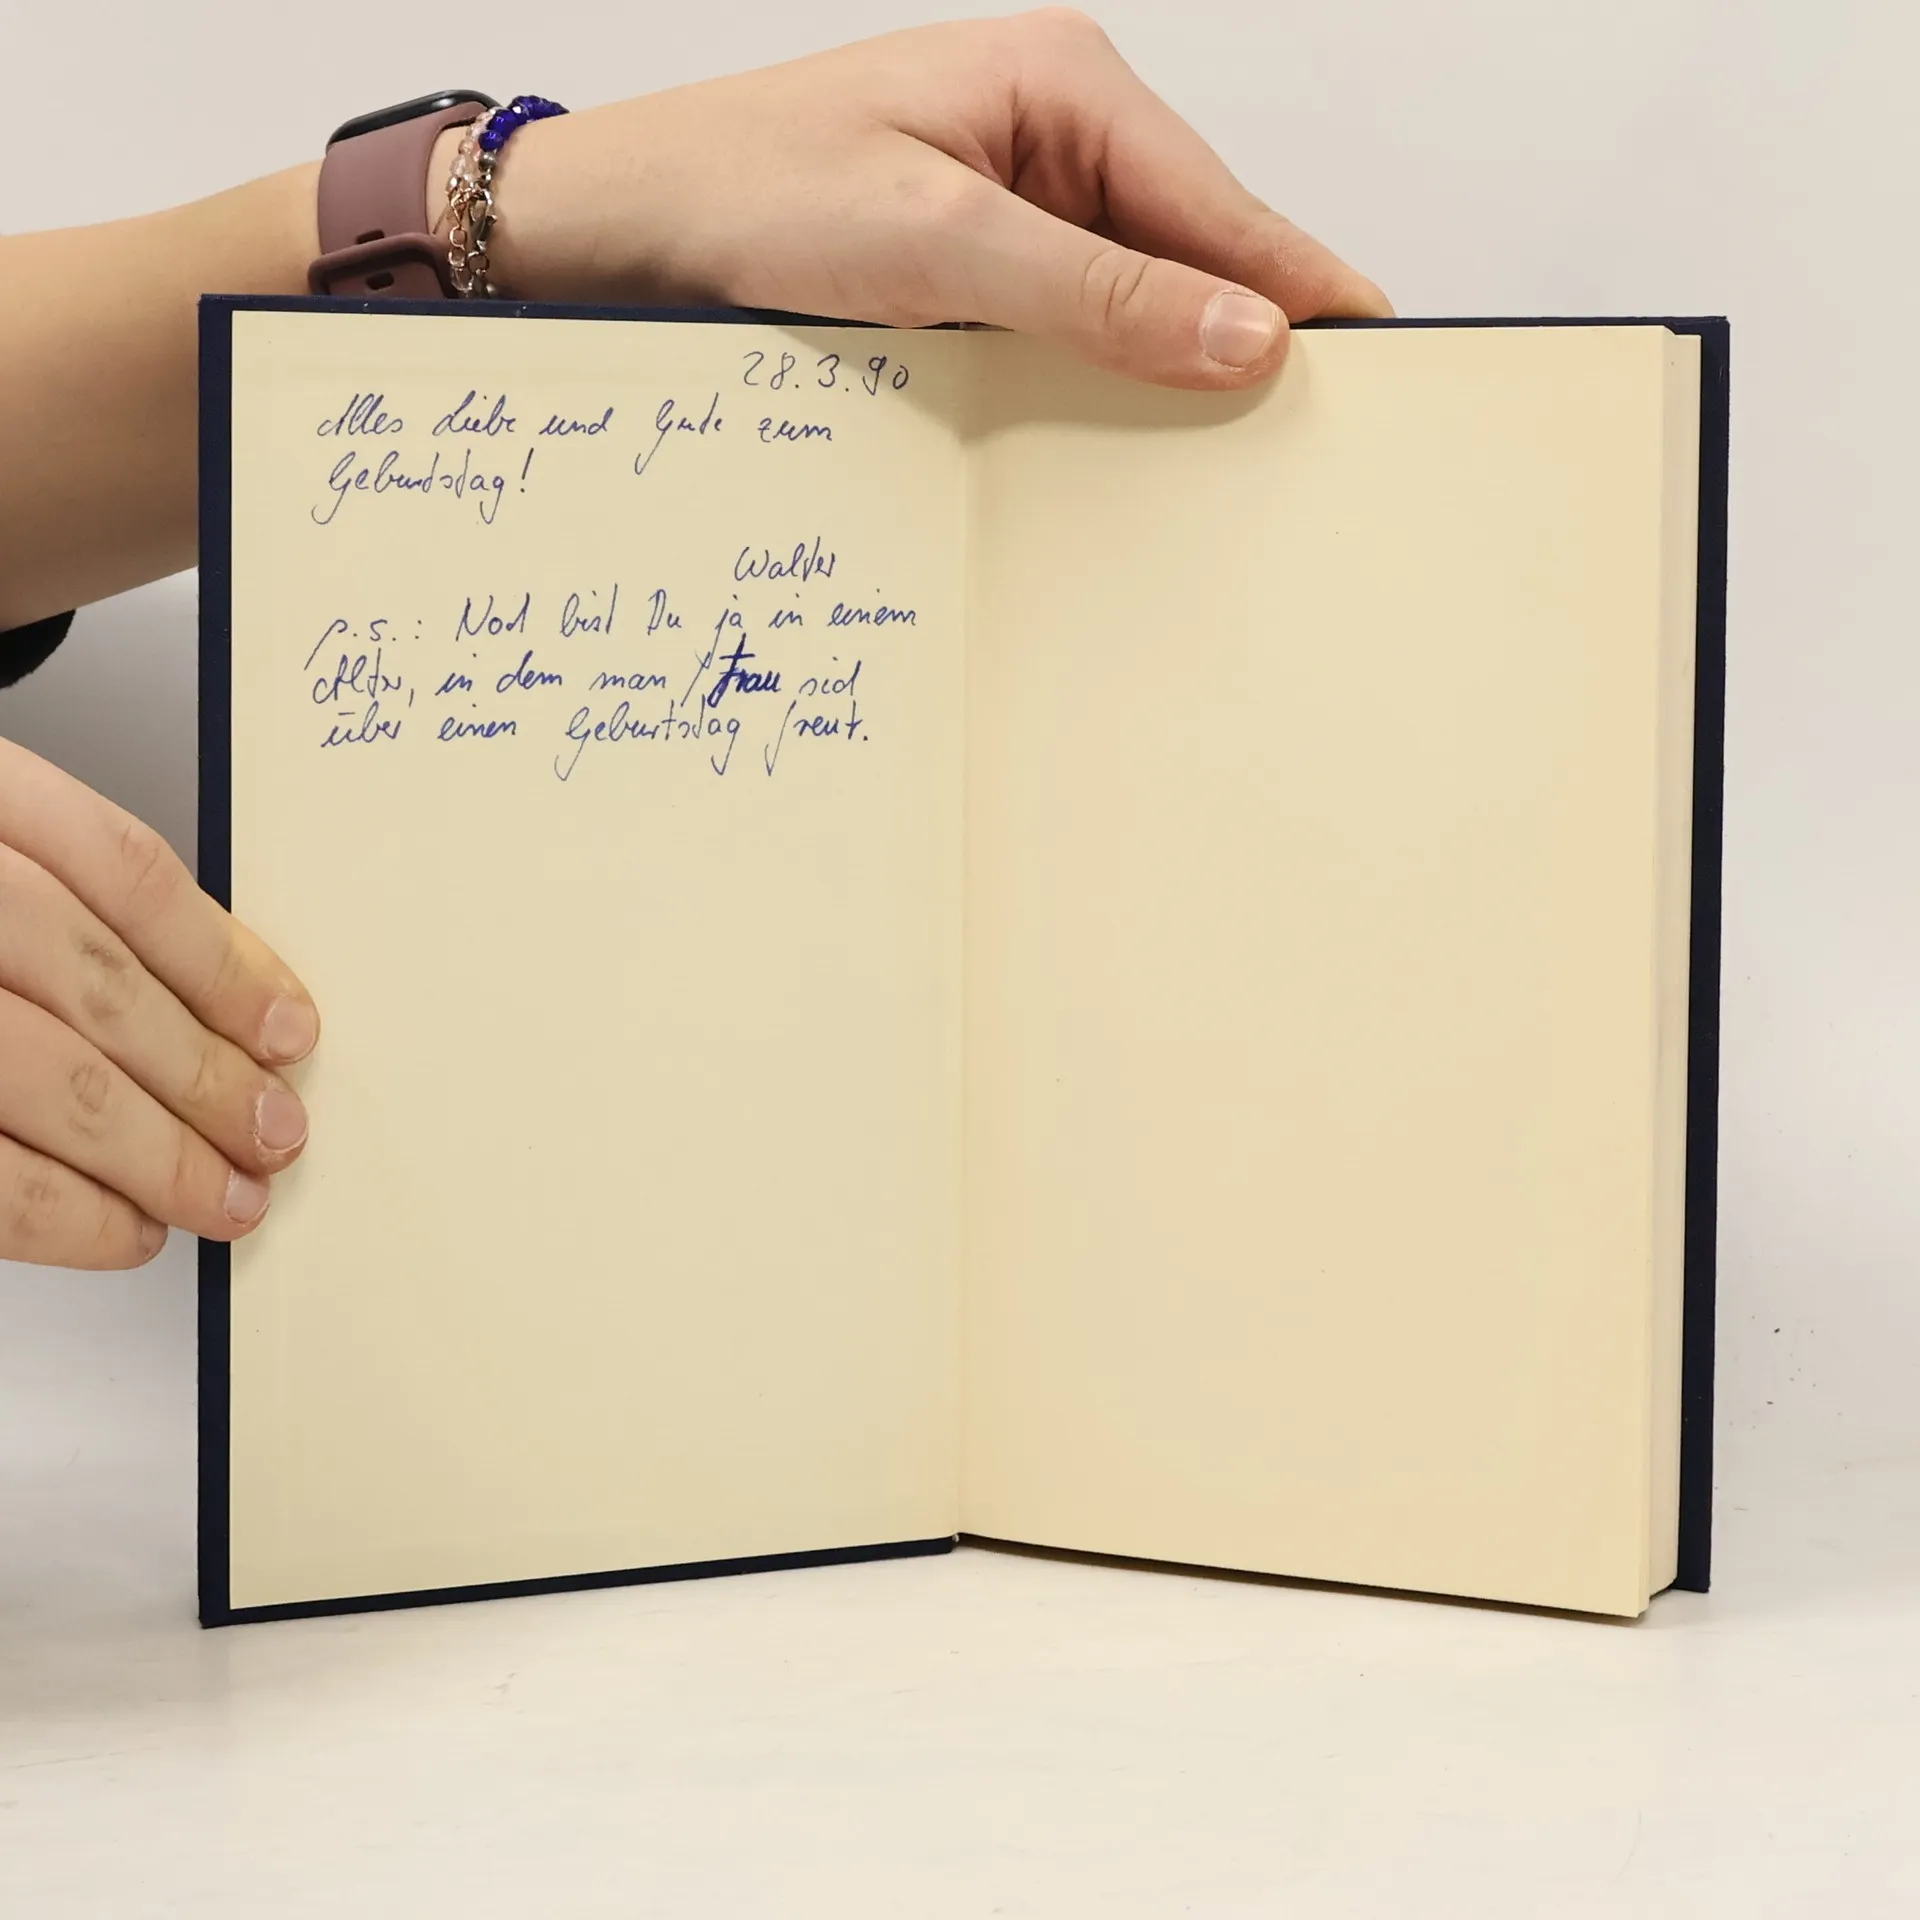 28.3.90
Alles Liebe und Gute zum
Geburtstag!
Walter
p.s.: Noch bist Du ja in einem
Alter, in dem man / Frau sich
über einen Geburtstag freut.